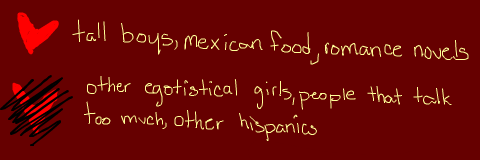 tall boys, mexican food, romance novels
other egotistical girls, people that talk
too much, other hispanics